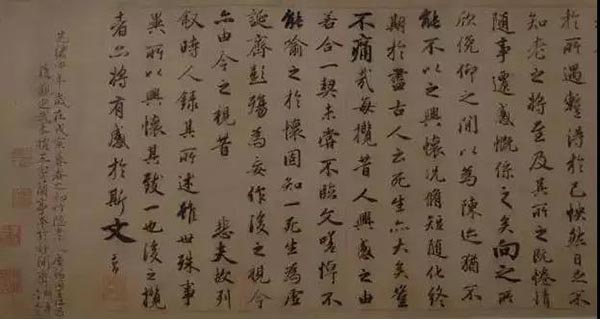 於所遇蹔得於己怏然自足不
知老之將至及其所之既惓情
随事遷感慨係之矣向之所
欣俛仰之閒以為陳迹猶不
能不以之興懷况脩短随化終
期於盡古人云死生亦大矣豈
不痛哉每攬昔人興感之由
若合一契未嘗不臨文嗟悼不
能喻之於懷固知一死生為虛
誕齊彭殤為妄作後之視今
亦由今之視昔 悲夫故列
叙時人録其所述雖世殊事
異所以興懷其致一也後之攬
者亦將有感於斯文
年歲在戊寅暮春之初